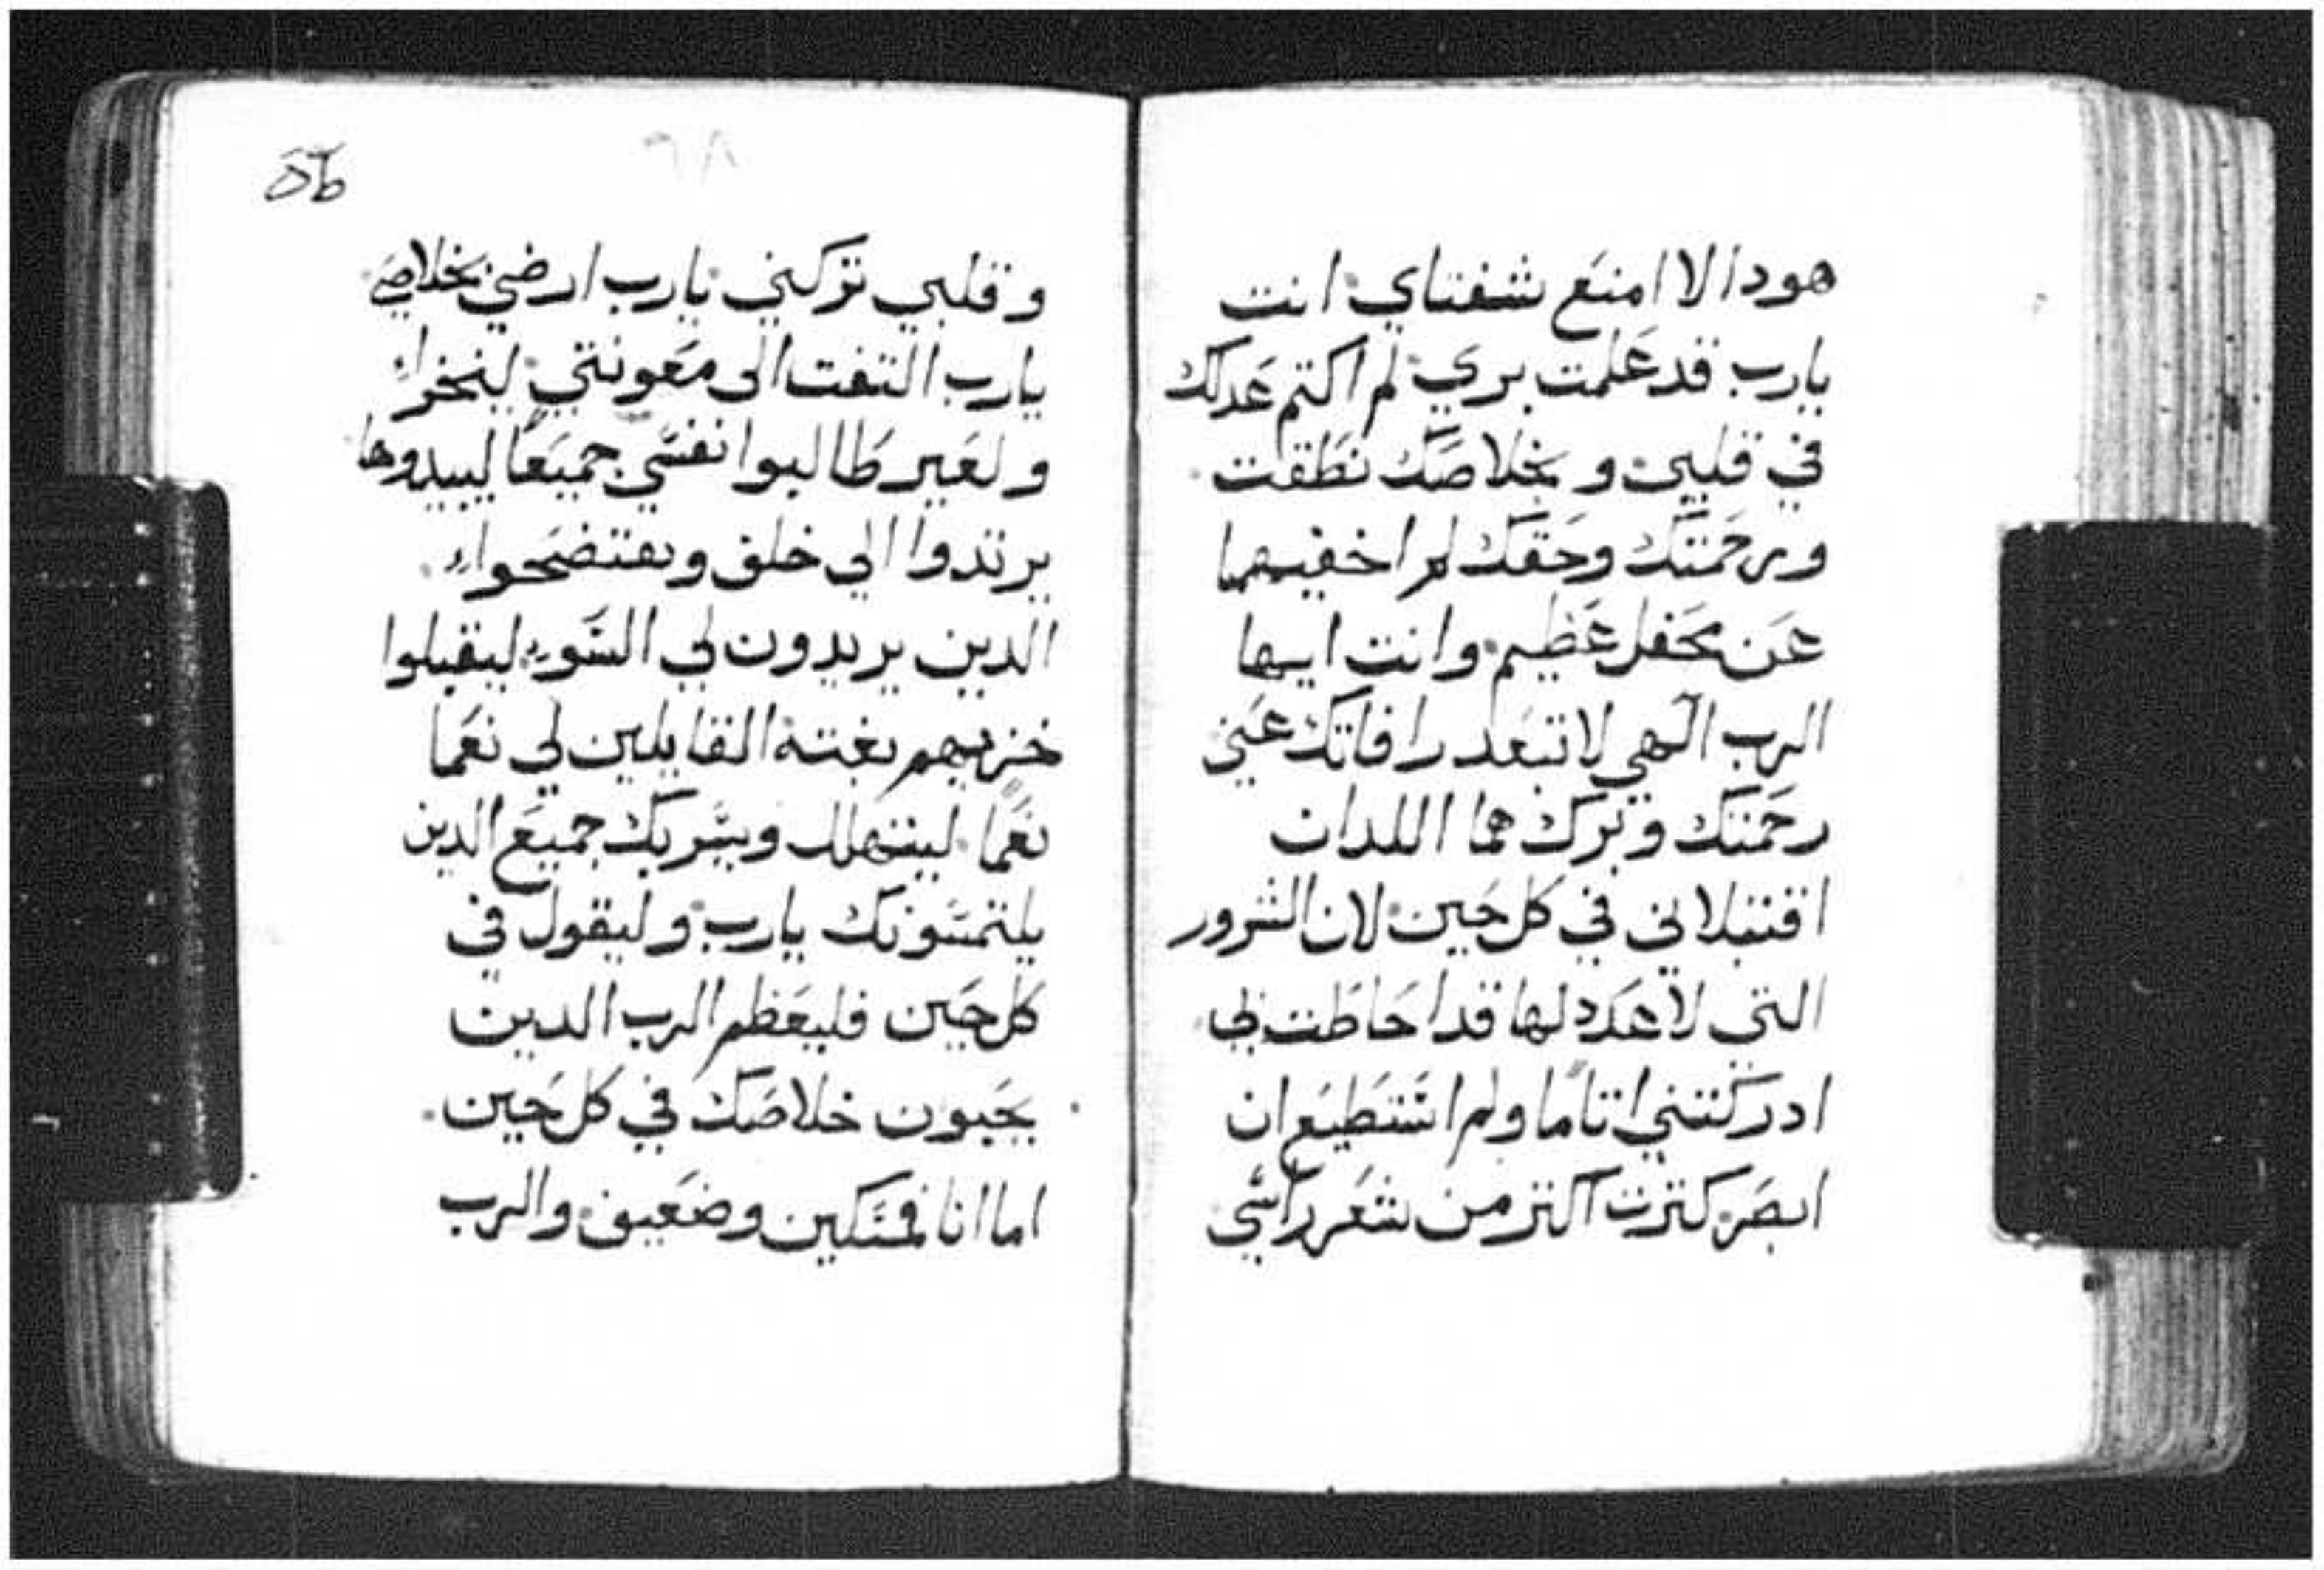 هودا لا امنع شفتاي انت
يارب قد علمت بري لم اكتم عدلك
في قلبي وبخلاصك نطقت
وبرحمتك وحقك لم اخفيهما
عن محفل عظيم وانت ايها
الرب الهي لا تبعد رافاتك عني
رحمتك وبرك هما اللدان
اقتبلاني في كل حين لان الشرور
التي لا عدد لها قد احاطت بي
ادركتني اتاما ولم استطيع ان
ابصر كترت اكتر من شعر راسي
وقلبي تركني يارب ارضي بخلاصي
يارب التفت الى معونتي ليخزوا
وليعير طالبوا نفسي جميعا ليبيدوها
يرتدوا الي خلف ويفتضحوا
الدين يريدون لي السوء ليقبلوا
خزيهم بغتة القايلين لي نعما
نعما ليتهلل ويسر بك جميع الدين
يلتمسونك يارب وليقول في
كل حين فليعظم الرب الدين
يحبون خلاصك في كل حين
اما انا فمسكين وضعيف والرب